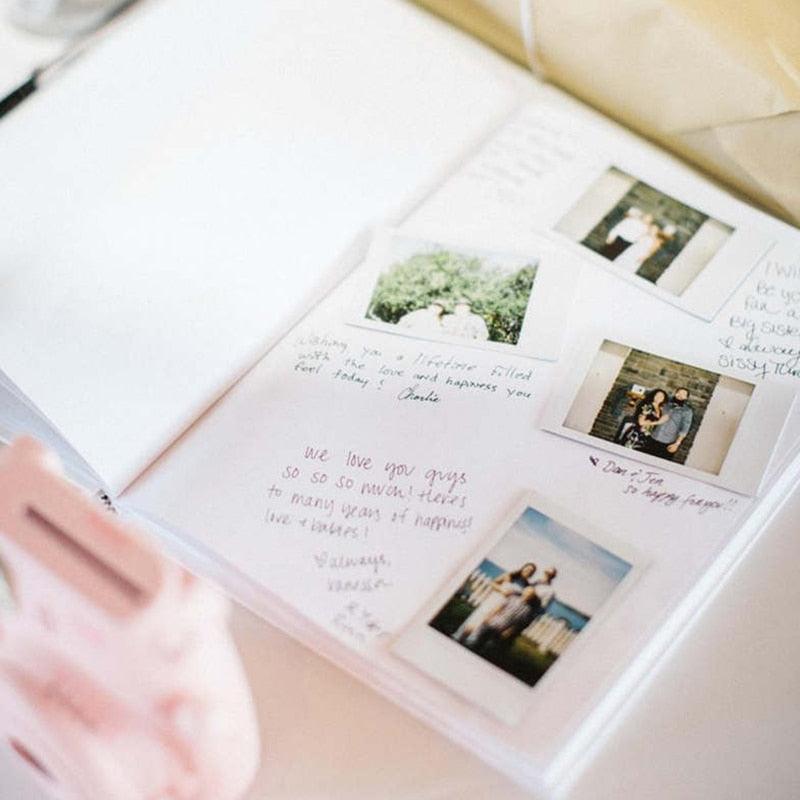 Wishing you a lifetime filled
with the love and happiness you
feel today! Charlie
I Will
Be yo
far a
Big siste
always
sissy
Dan + Jen
so happy for you!!
we love you guys
so so so much! Here's
to many years of happiness!
love + babies!
always,
Vanessa